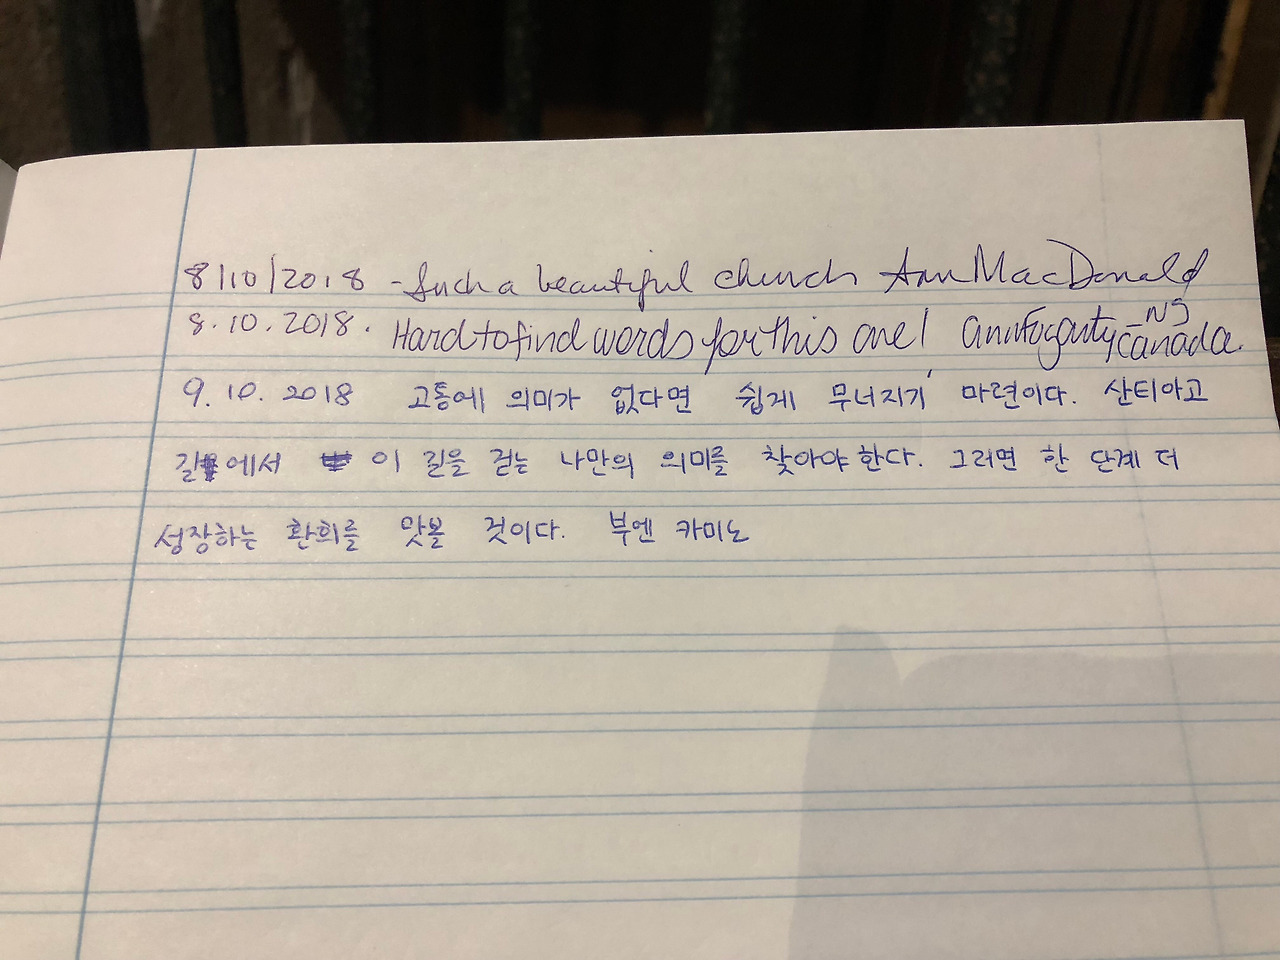 8/10/2018 - Such a beautiful church Ann MacDonald
8.10.2018. Hard to find words for this one! Ann Fogarty - NS Canada.
9. 10. 2018 고통에 의미가 없다면 쉽게 무너지기 마련이다. 산티아고
길에서 이 길을 걷는 나만의 의미를 찾아야 한다. 그러면 한 단계 더
성장하는 환희를 맛볼 것이다. 부엔 카미노